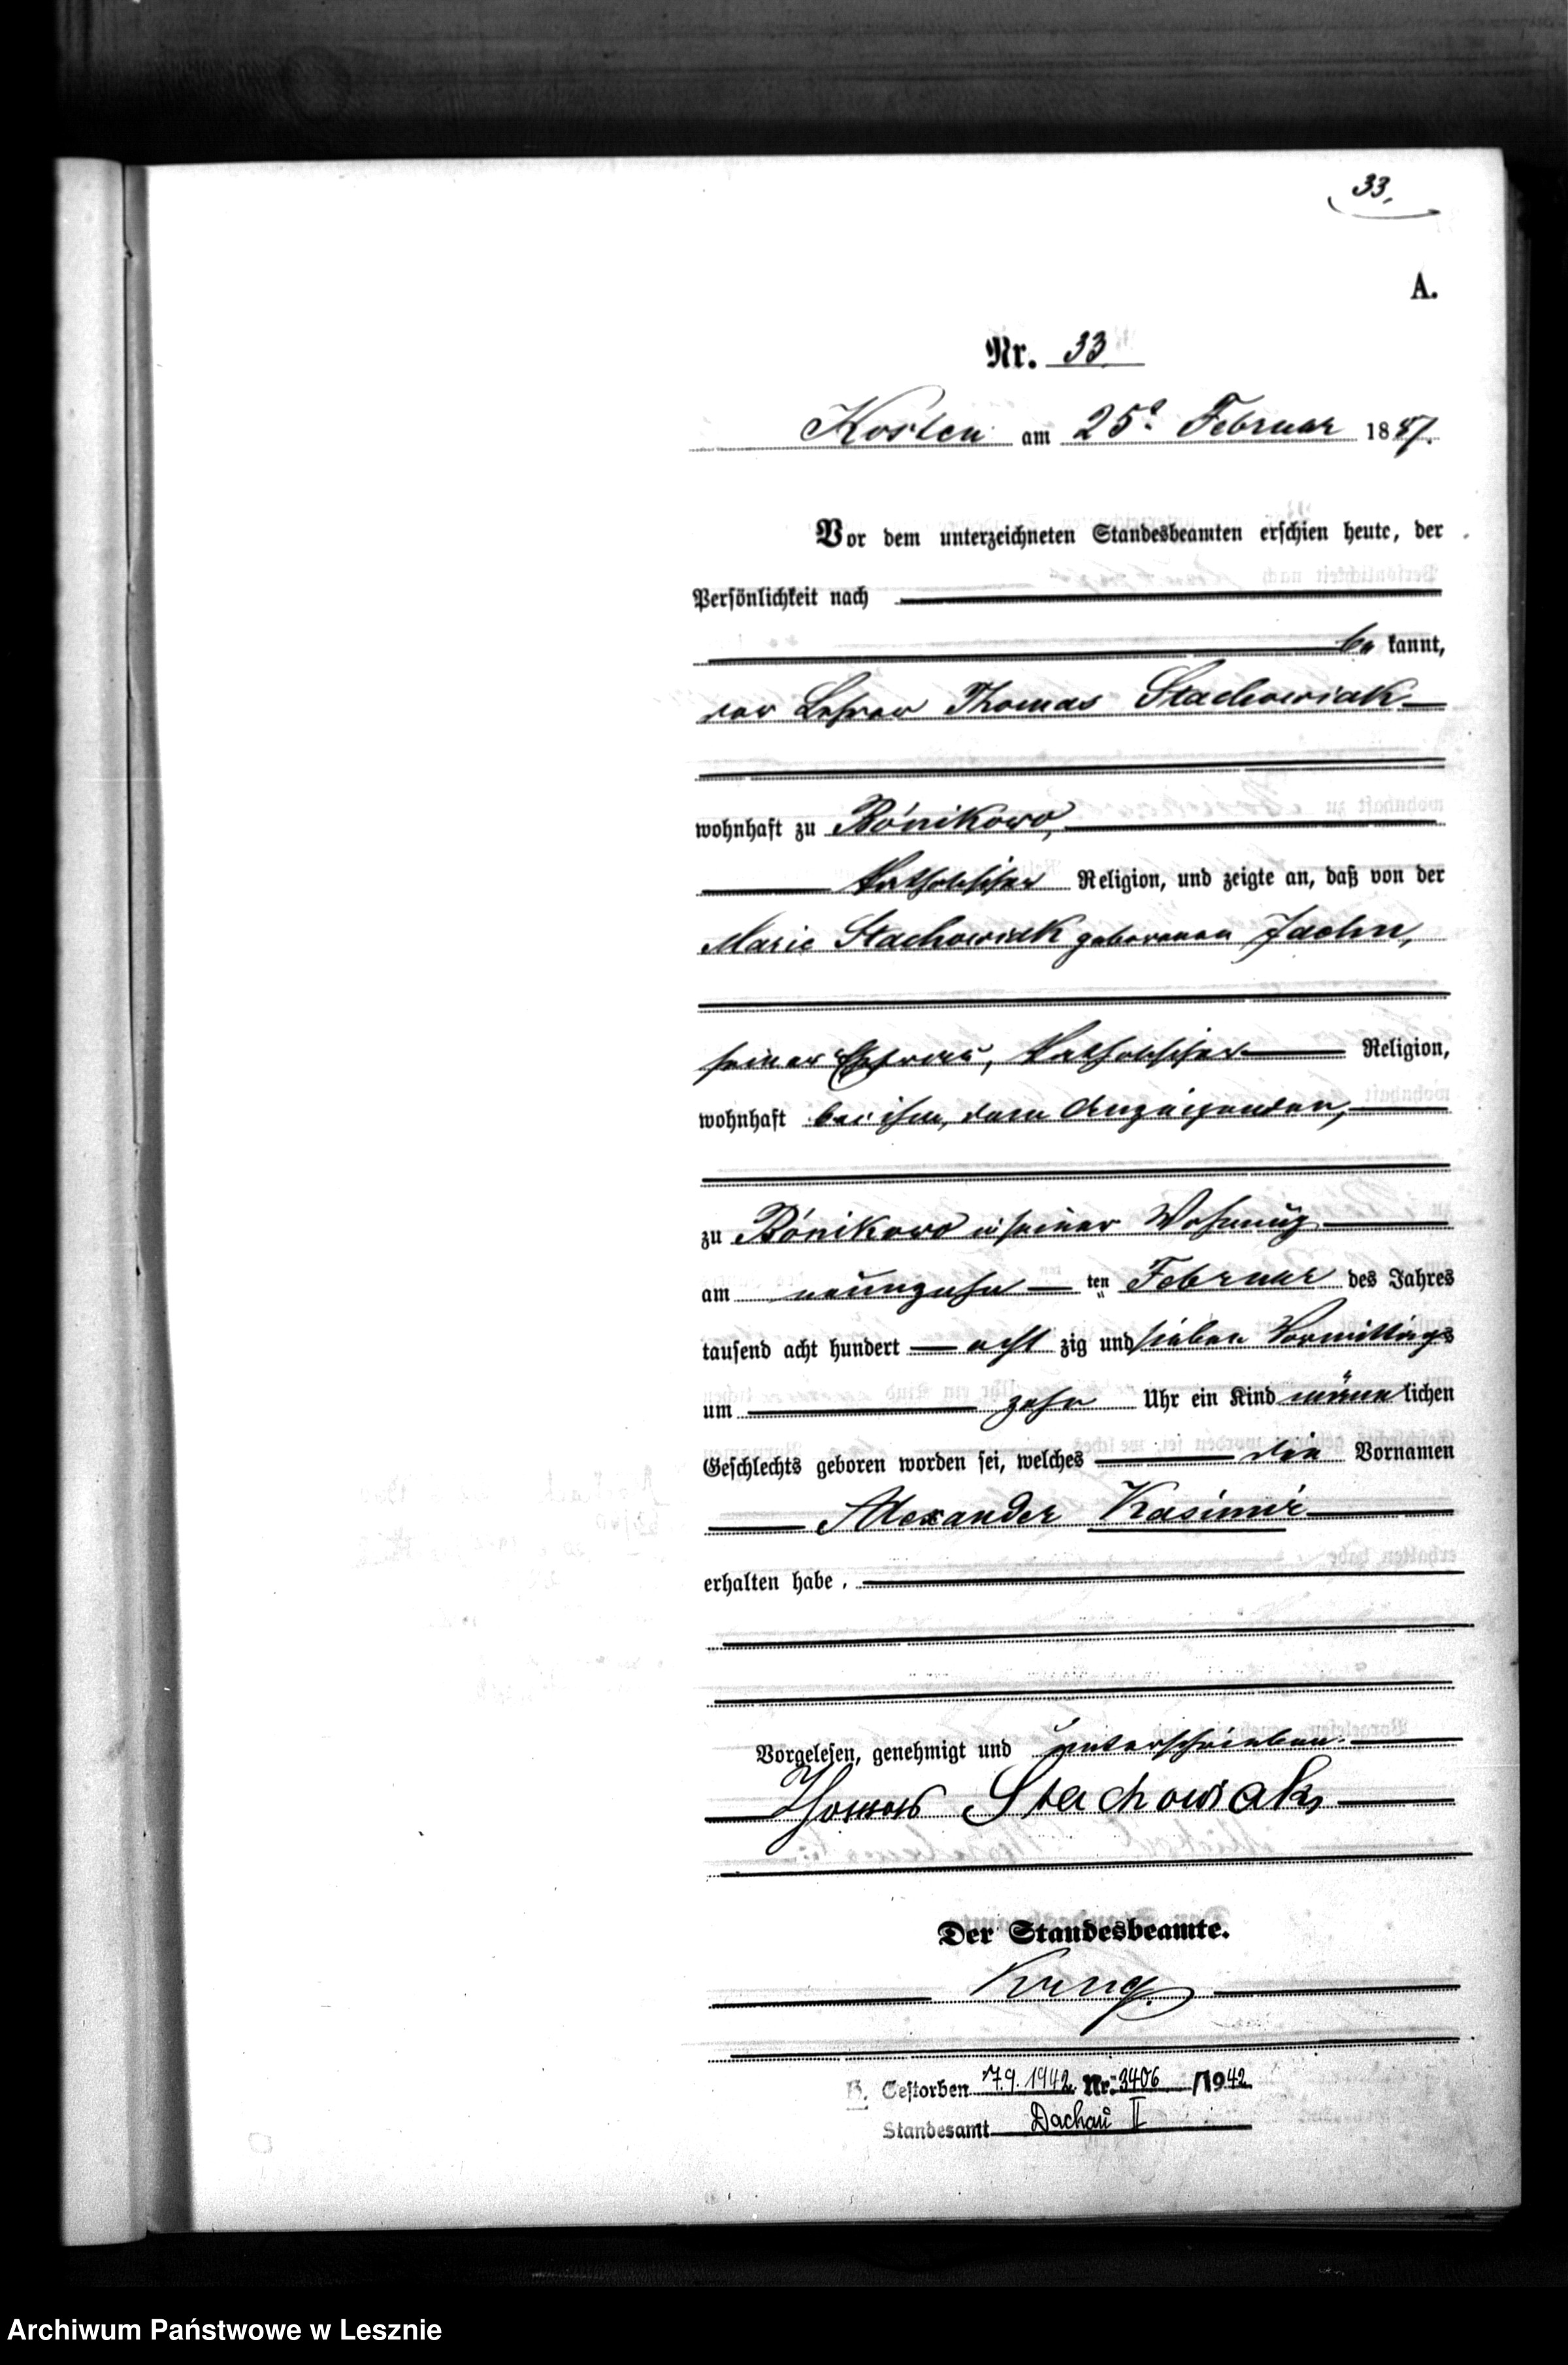 33.
A.
Nr. 33.
Kosten am 25ᵗ Februar 1887.
Vor dem unterzeichneten Standesbeamten erschien heute, der
Persönlichkeit nach
be kannt,
der Lehrer Thomas Stachowiak
wohnhaft zu Bónikowo,
katholischer Religion, und zeigte an, daß von der
Marie Stachowiak geborenen Jachn,
seiner Ehefrau, katholischer Religion,
wohnhaft bei ihm, dem Anzeigenden,
zu Bónikowo in seiner Wohnung
am neunzehn ten Februar des Jahres
tausend acht hundert acht zig und sieben Vormittags
um zehn Uhr ein Kind männ lichen
Geschlechts geboren worden sei, welches die Vornamen
Alexander Kasimir
erhalten habe.
Vorgelesen, genehmigt und unterschrieben.
Thomas Stachowiak
Der Standesbeamte.
B. Gestorben 17.9.1942. Nr. 3406 /1942
Standesamt Dachau II
Archiwum Państwowe w Lesznie